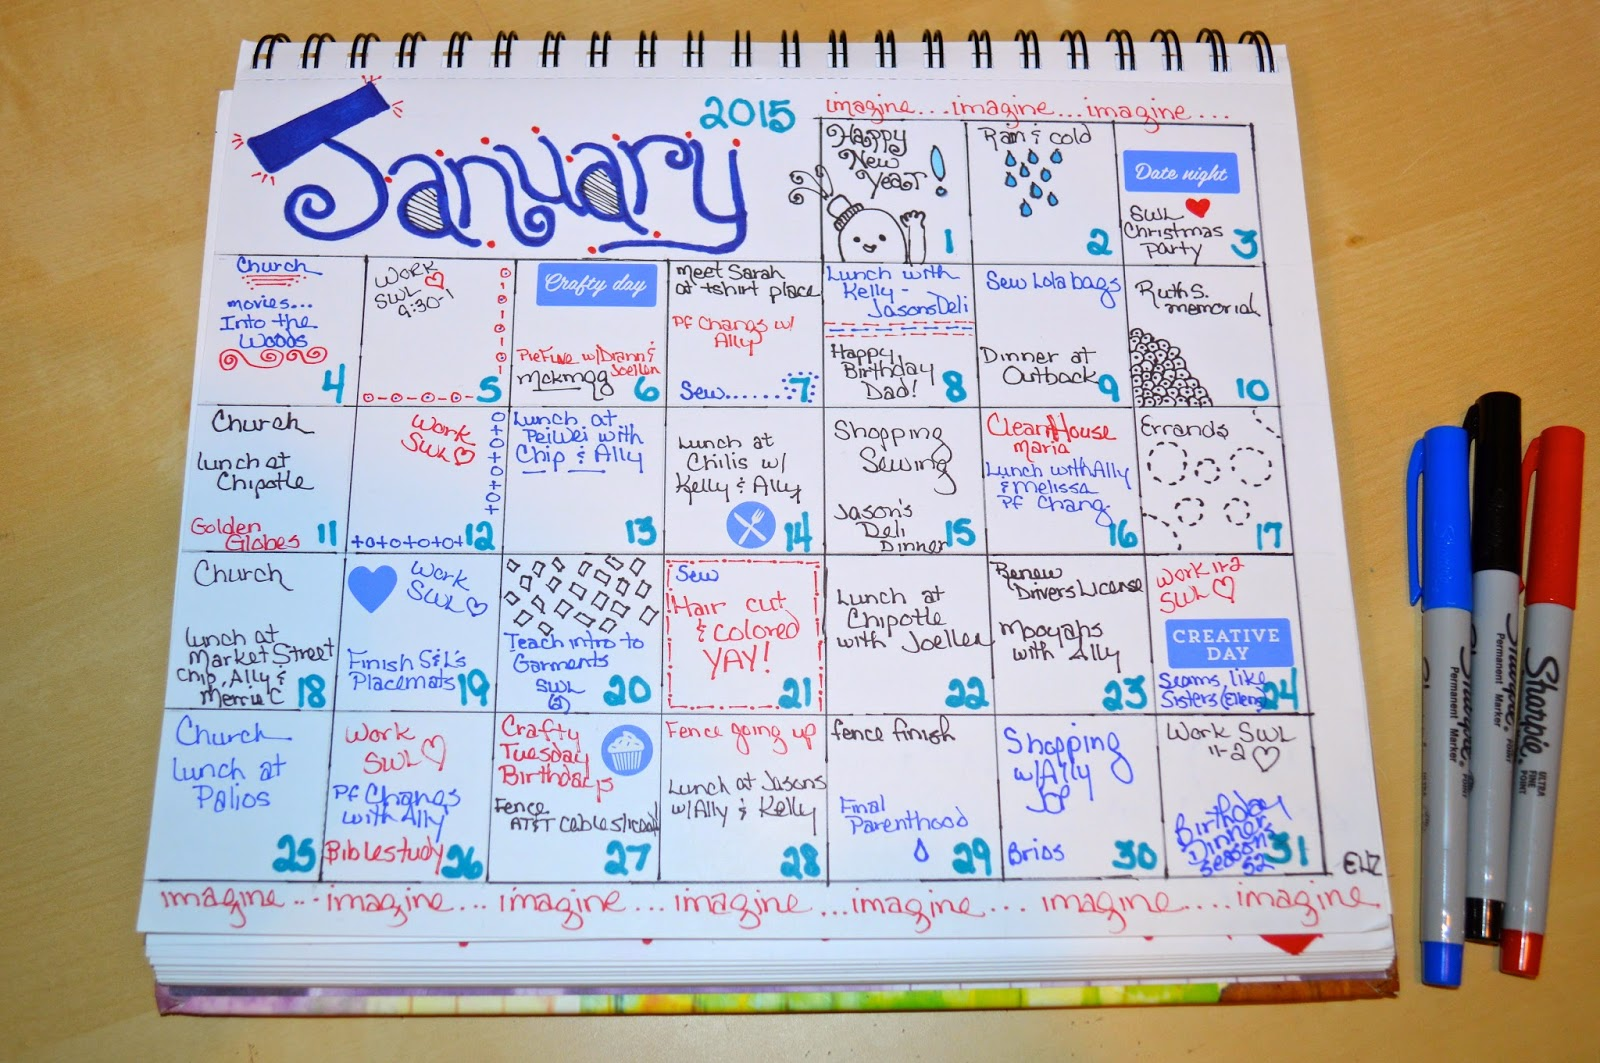 2015
January
imagine...imagine...imagine...
Happy
New
Year!
1
Rain & cold
2
Date night
SWL
Christmas
party
3
Church
movies...
Into the
Woods
4
Work
SWL
9:30-1
5
Crafty day
Pie Five w/Drann &
Joellen
mckmqg
6
meet Sarah
at tshirt place
Pf Changs w/
Ally
Sew.......
7
Lunch with
Kelly -
Jasons Deli
Happy
Birthday
Dad!
8
Sew Lola bags
Dinner at
Outback
9
Ruth S.
memorial
10
Church
lunch at
Chipotle
Golden
Globes
11
Work
SWL
12
Lunch at
PeiWei with
Chip & Ally
13
Lunch at
Chilis w/
Kelly & Ally
14
Shopping
Sewing
Jason's
Deli
Dinner
15
Clean House
Maria
Lunch with Ally
& Melissa
Pf Chang
16
Errands
17
Church
lunch at
Market Street
Chip, Ally &
Merrie C
18
Work
SWL
Finish S&L's
Placemats
19
Teach intro to
Garments
SWL
(2)
20
Sew
Hair cut
& colored
YAY!
21
Lunch at
Chipotle
with Joellen
22
Renew
Drivers License
Mooyahs
with Ally
23
Work 11-2
SWL
CREATIVE
DAY
Seams like
Sisters (Ellens)
24
Church
Lunch at
Palios
25
Work
SWL
Pf Changs
with Ally
Bible study
26
Crafty
Tuesday
Birthdays
Fence
AT&T cable
27
Fence going up
Lunch at Jasons
w/Ally & Kelly
28
fence finish
Final
Parenthood
29
Shopping
w/Ally
JoP
Brios
30
Work SWL
11-2
Birthday
Dinner
Seasons
52
31
imagine...imagine...imagine...imagine...imagine...imagine....imagine
Sharpie
Permanent Marker
ULTRA
FINE
POINT
Permanent Marker
Permanent Marker